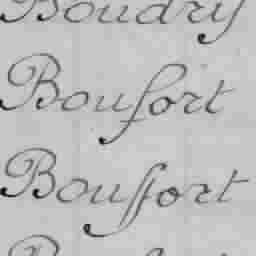 Boudry
Boufort
Bouffort